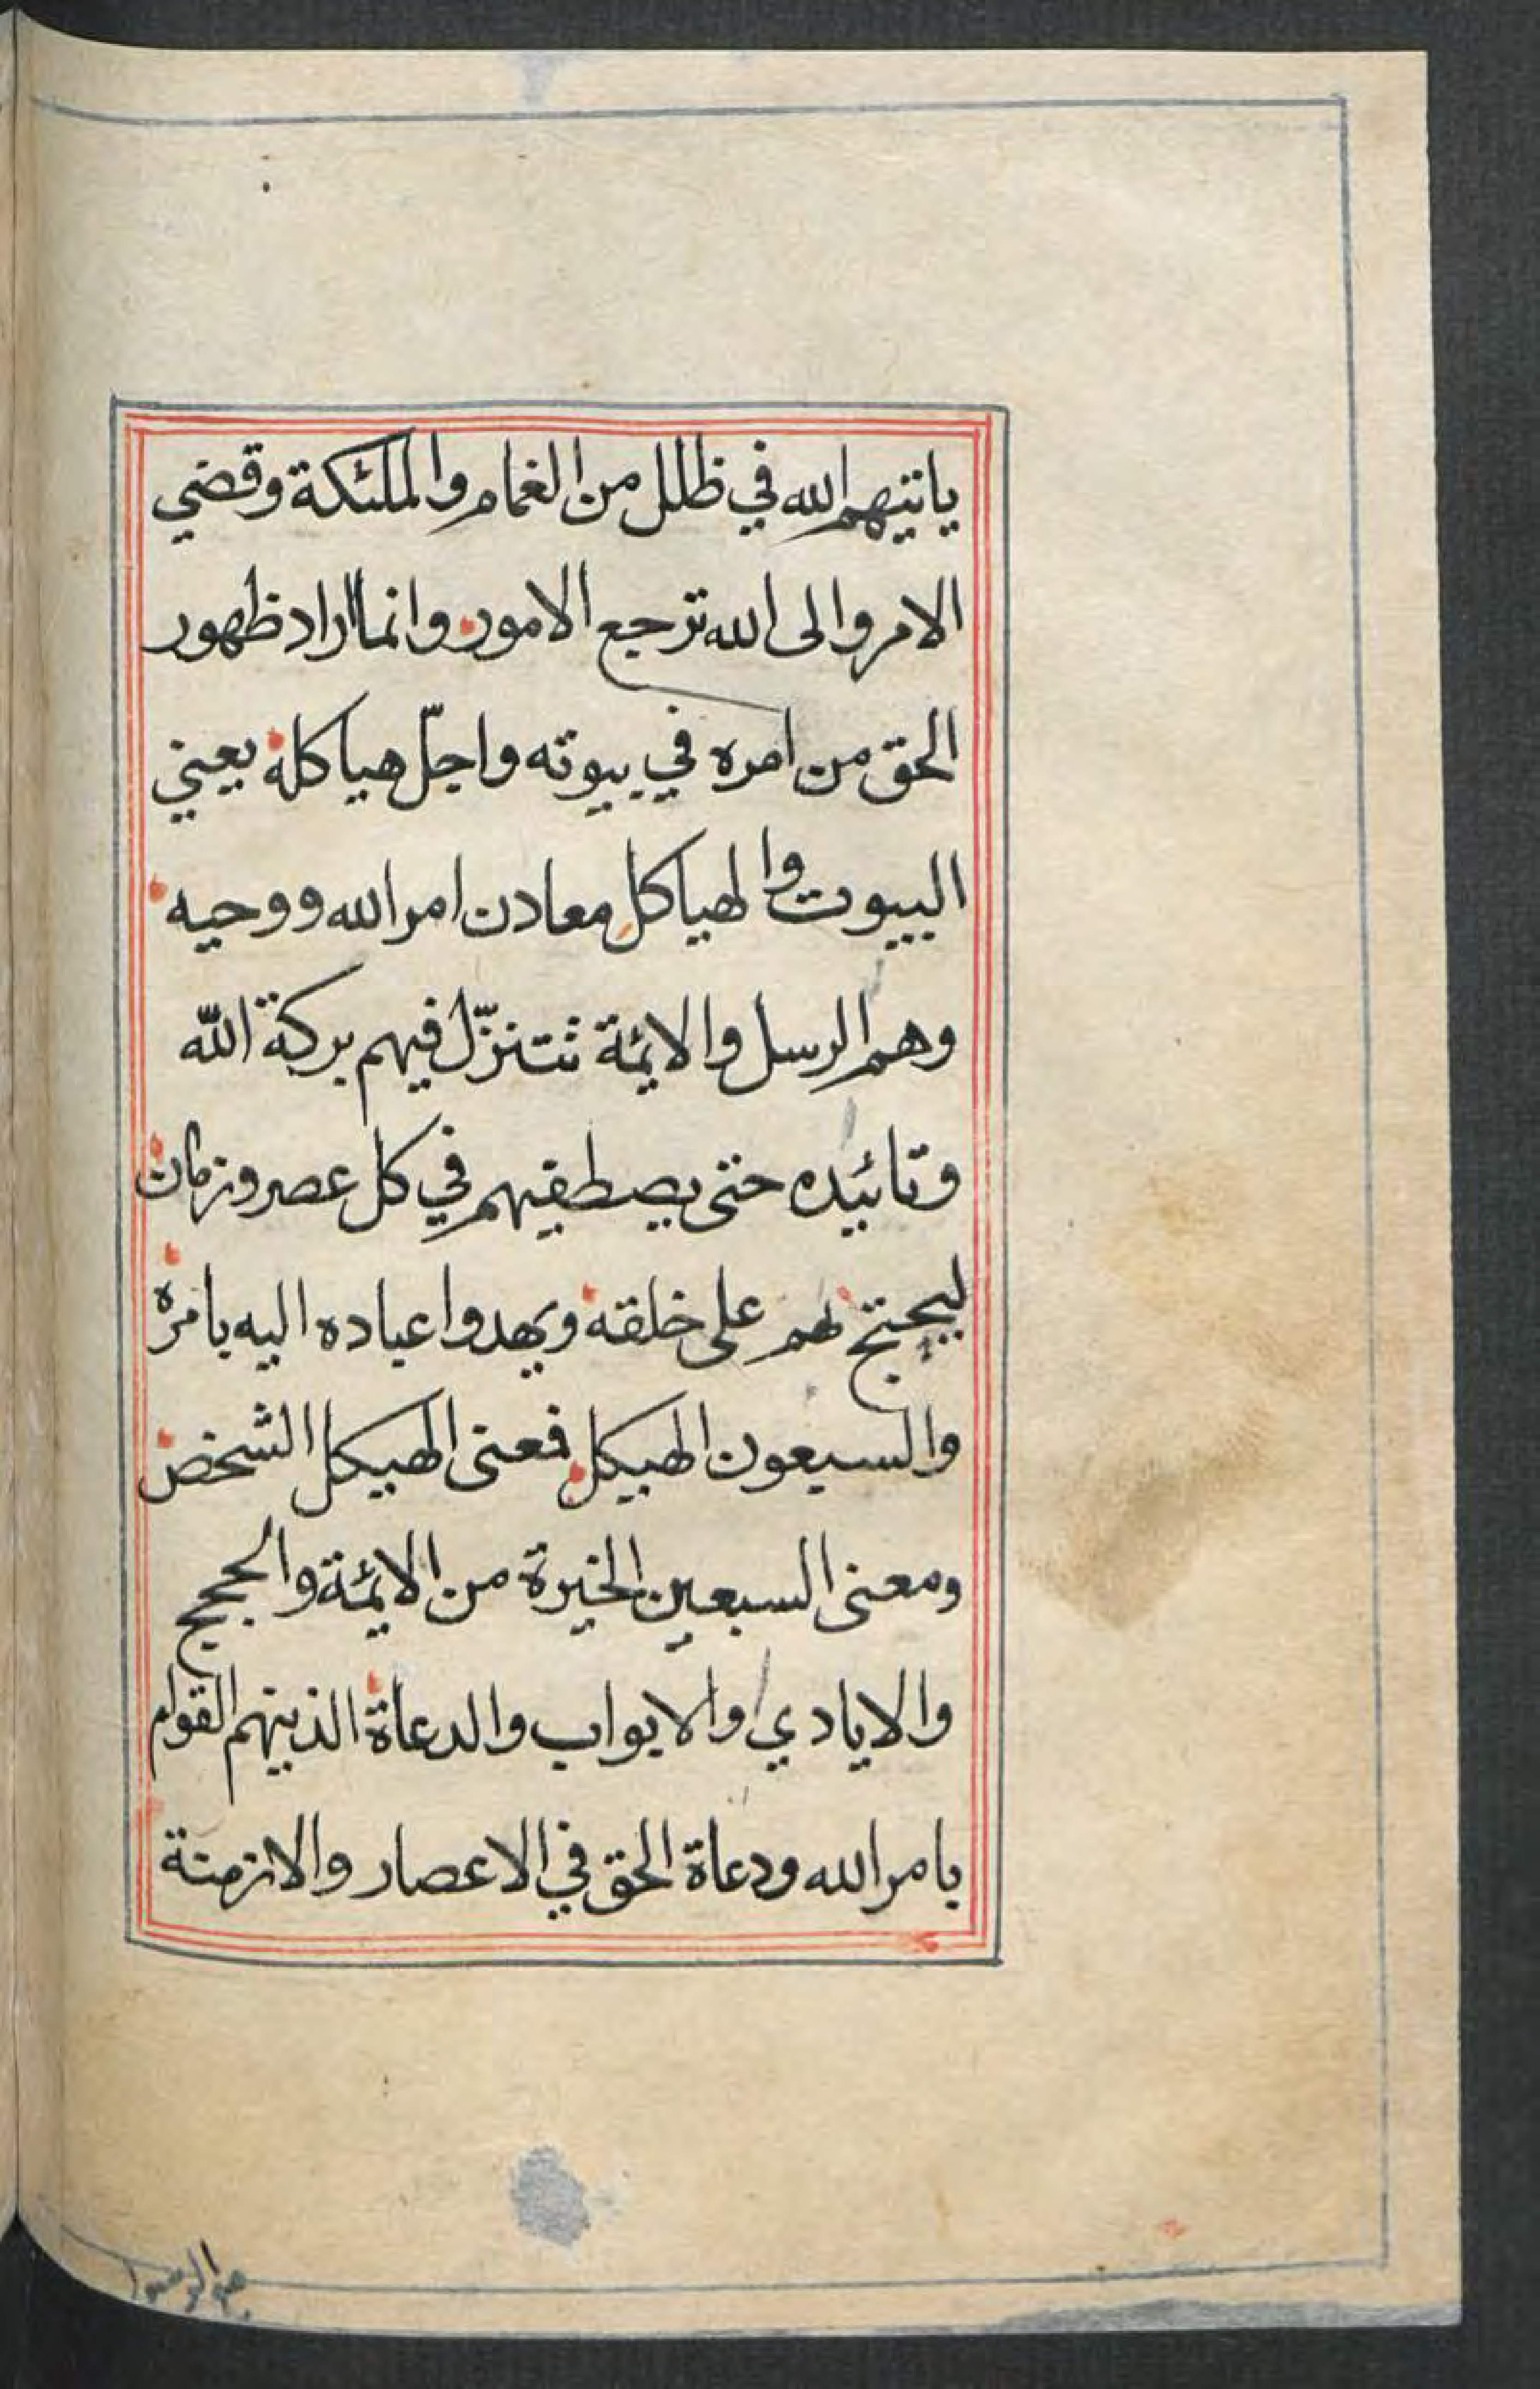 ياتيهم الله في ظلل من الغمام والملئكة وقضي
الامر والى الله ترجع الامور وانما اراد ظهور
الحق من امره في بيوته واجلّ هياكله يعني
البيوت والهياكل معادن امر الله ووحيه
وهم الرسل والايمة تتنزّل فيهم بركة اللّه
وتائيده حتى يصطفيهم في كل عصر وزمان
ليحتج بهم على خلقه ويهدوا عباده اليه بامره
والسبعون الهيكل فمعنى الهيكل الشخص
ومعنى السبعين الخيرة من الايمة والحجج
والايادي والابواب والدعاة الذينهم القوام
بامر الله ودعاة الحق في الاعصار والازمنة